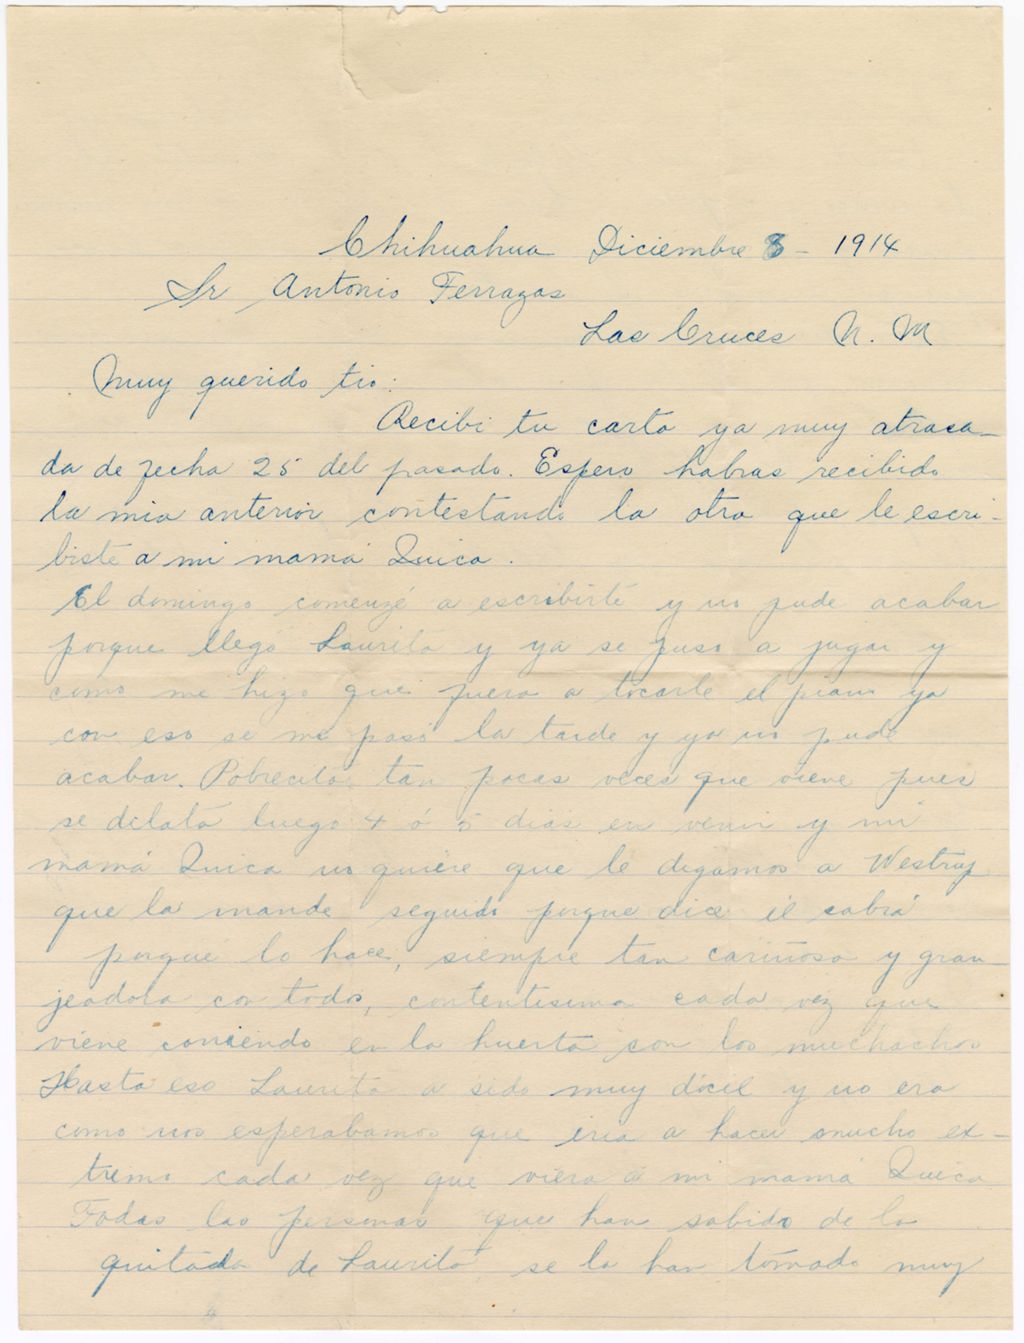 Chihuahua Diciembre 8 - 1914
Sr Antonio Terrazas
Las Cruces N. M
Muy querido tio:
Recibi tu carta ya muy atrasa-
da de fecha 25 del pasado. Espero habras recibido
la mia anterior contestando la otra que le escri-
biste a mi mamá Quica.
El domingo comenzé a escribirte y no pude acabar
porque llegó Laurita y ya se puso a jugar y
como me hizo que fuera a tocarle el piano ya
con eso se me pasó la tarde y ya no pude
acabar. Pobrecita tan pocas veces que viene pues
se dilata luego 4 ó 5 dias en venir y mi
mamá Quica no quiere que le digamos a Westrup
que la mande seguido porque dice él sabrá
porqué lo hace, siempre tan cariñosa y gran-
jeadola con todos, contentisima cada vez que
viene corriendo en la huerta con los muchachos
Hasta eso Laurita a sido muy dócil y no era
como nos esperabamos que iria a hacer mucho ex-
tremo cada vez que viera a mi mamá Quica
Todas las personas que han sabido de la
quitada de Laurita se la han tomado muy